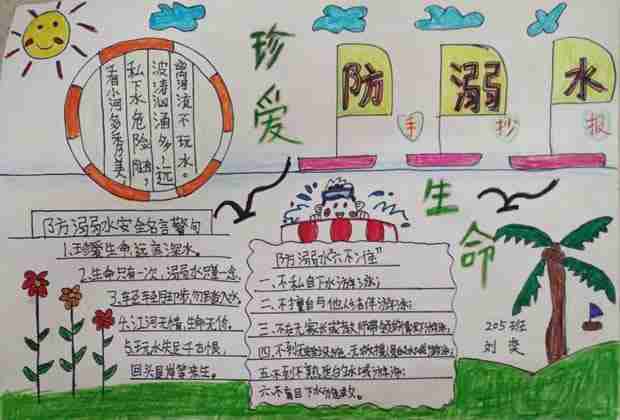 珍爱
生命
防溺水
手抄报
看小河多秀美
私下水危险随
波涛汹涌多上远
离河流不玩水。
防溺水安全名言警句
1.珍爱生命,远离深水。
2.生命只有一次,溺水只是一念。
3.勿踏入水。
4.江河无情,生命无价。
5.玩水失足千古恨,
回头且
防溺水"六不准"
一、不私自下水游泳;
二、不擅自与他人结伴游泳;
三、不在无家长或教师带领的情况下游泳;
四、不到无安全设施、无救援人员的水域游泳;
五、不到不熟悉的水域游泳;
六、不盲目下水施救。
205班
刘